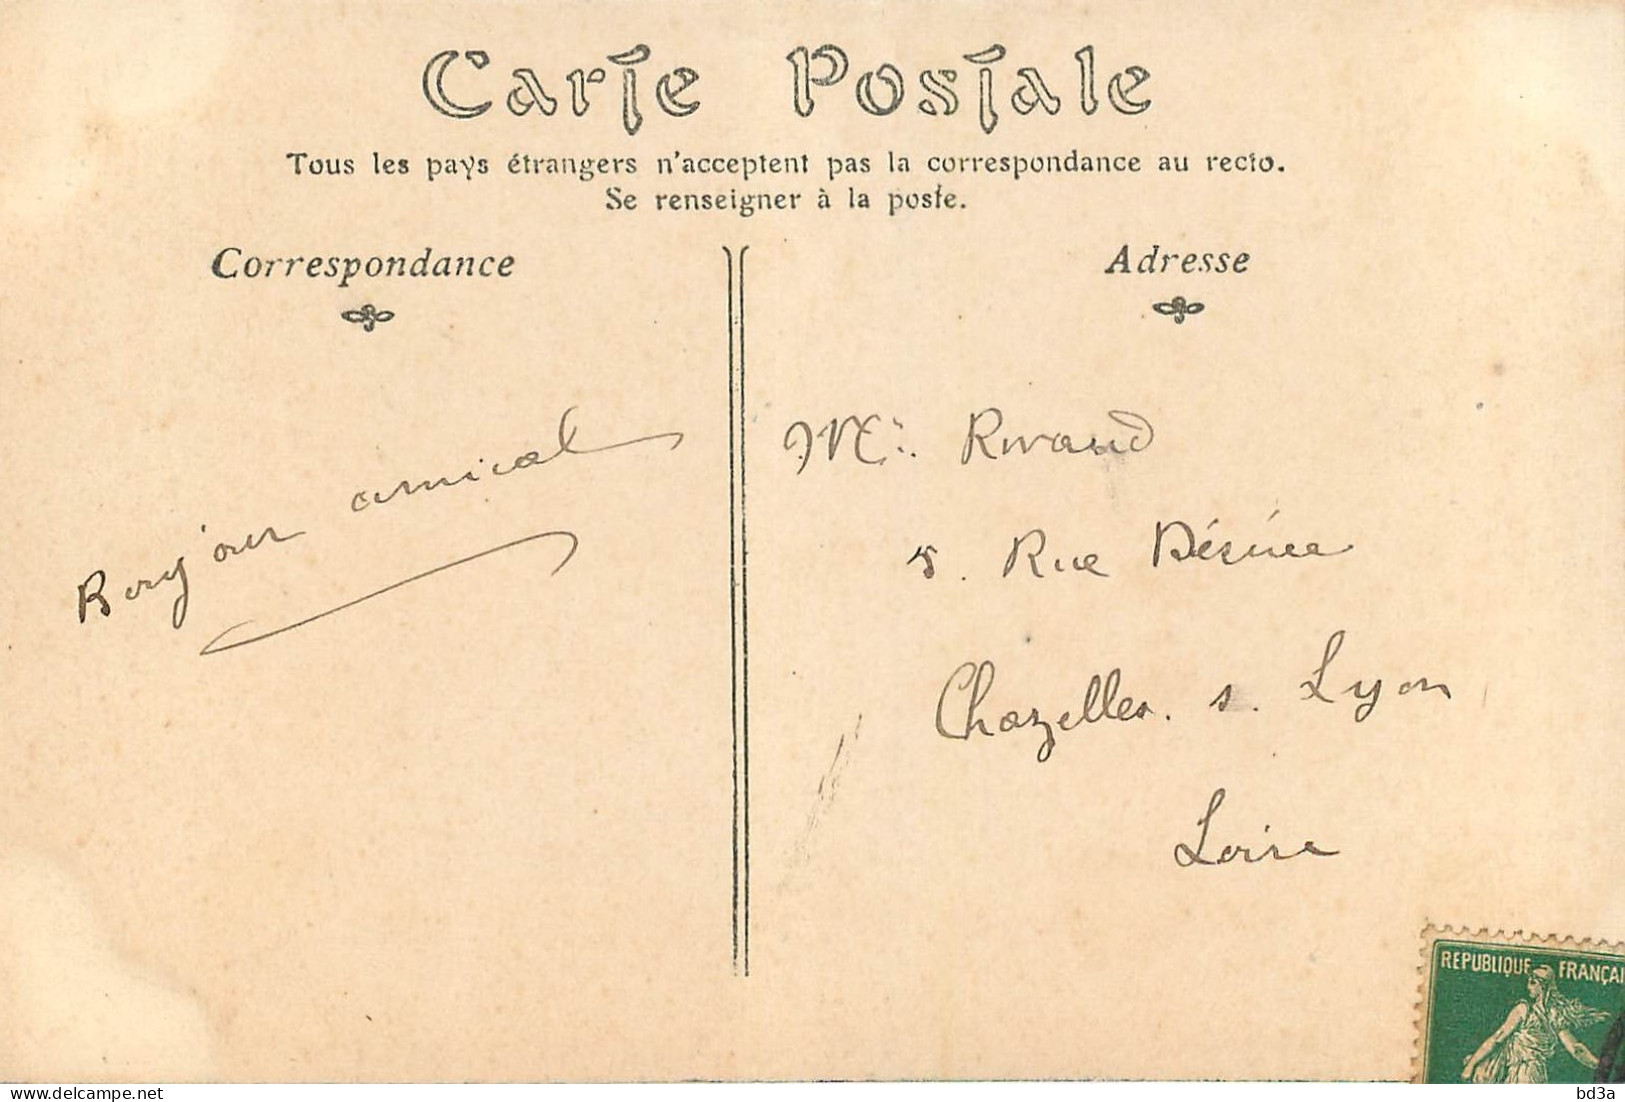 Carte Postale
Tous les pays étrangers n'acceptent pas la correspondance au recto.
Se renseigner à la poste.
Correspondance
Adresse
Bonjour amical
Rivaud
Rue Désirée
Chazelles. s. Lyon
Loire
REPUBLIQUE FRANÇAI
www.delcampe.net
bd3a